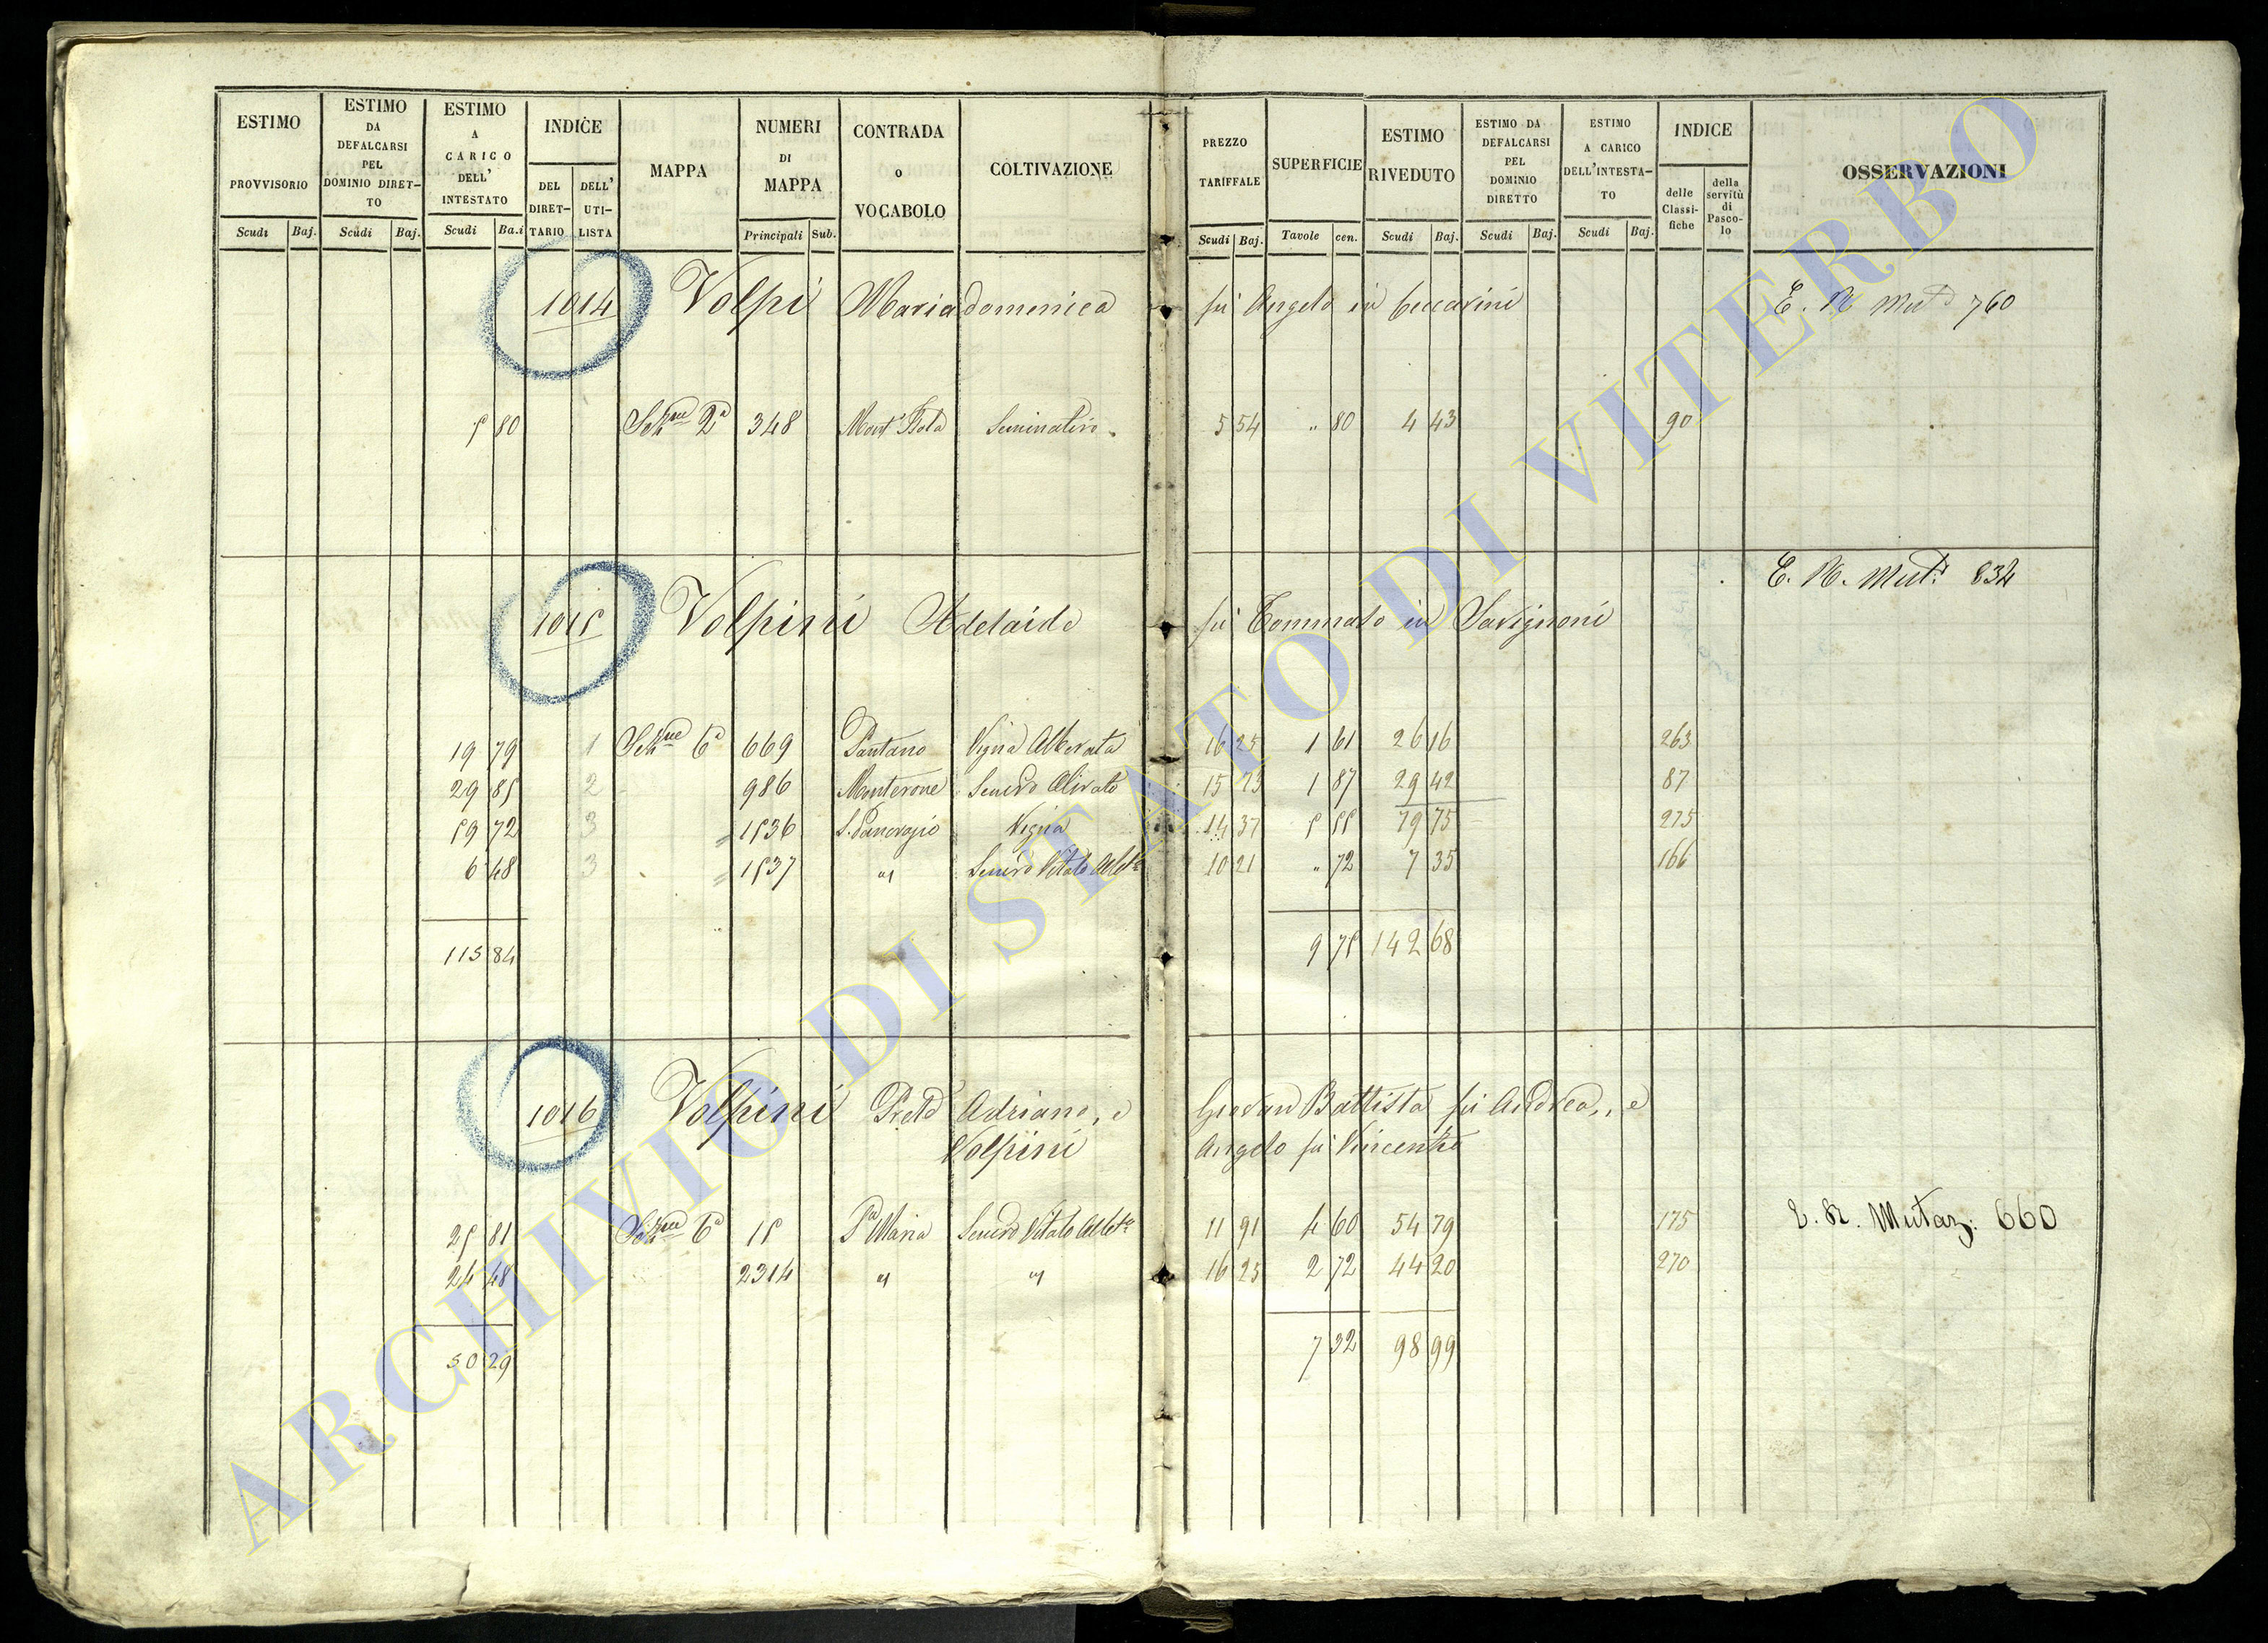 ESTIMO PROVVISORIO
ESTIMO DA DEFALCARSI PEL DOMINIO DIRET-TO
ESTIMO A CARICO DELL' INTESTATO
INDICE
DEL DIRET-TARIO
DELL' UTI-LISTA
MAPPA
NUMERI DI MAPPA
CONTRADA o VOCABOLO
COLTIVAZIONE
PREZZO TARIFFALE
SUPERFICIE
ESTIMO RIVEDUTO
ESTIMO DA DEFALCARSI PEL DOMINIO DIRETTO
ESTIMO A CARICO DELL'INTESTA-TO
INDICE
delle Classi-fiche
della servitù di Pasco-lo
OSSERVAZIONI
Scudi Baj. Scudi Baj. Scudi Ba.i Principali Sub. Scudi Baj. Tavole cen. Scudi Baj. Scudi Baj. Scudi Baj.
1014 Volpi Maria domenica fù Angelo in Ceccarini E. N. Mut. 760
5 80 Sezne 2a 348 Seminativo 5 54 " 80 4 43 90
E. N. Mut. 834
1015 Volpini Adelaide fù Tommaso in Savignoni
19 79 1 Sezne 6a 669 Pantano Vigna Alberata 16 25 1 61 26 16 263
29 85 2 986 Monterone Semvo Olivato 15 73 1 87 29 42 87
59 72 3 1536 S. Pancrazio Vigna 14 37 5 55 79 75 275
6 48 3 1537 " Semvo Vitato Albto 10 21 " 72 7 35 166
115 84 9 75 142 68
1016 Volpini Adriano, e Giovan Battista fù Andrea, e
Volpini Angelo fù Vincenzo
25 81 Sezne 6a 15 Sa Maria Semvo Vitato Albto 11 91 4 60 54 79 175 E. N. Mutaz. 660
24 48 2314 " " 16 25 2 72 44 20 270
50 29 7 32 98 99
ARCHIVIO DI STATO DI VITERBO